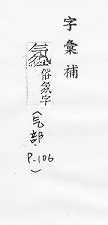 字彙補
俗氣字
(气部,
P.106)